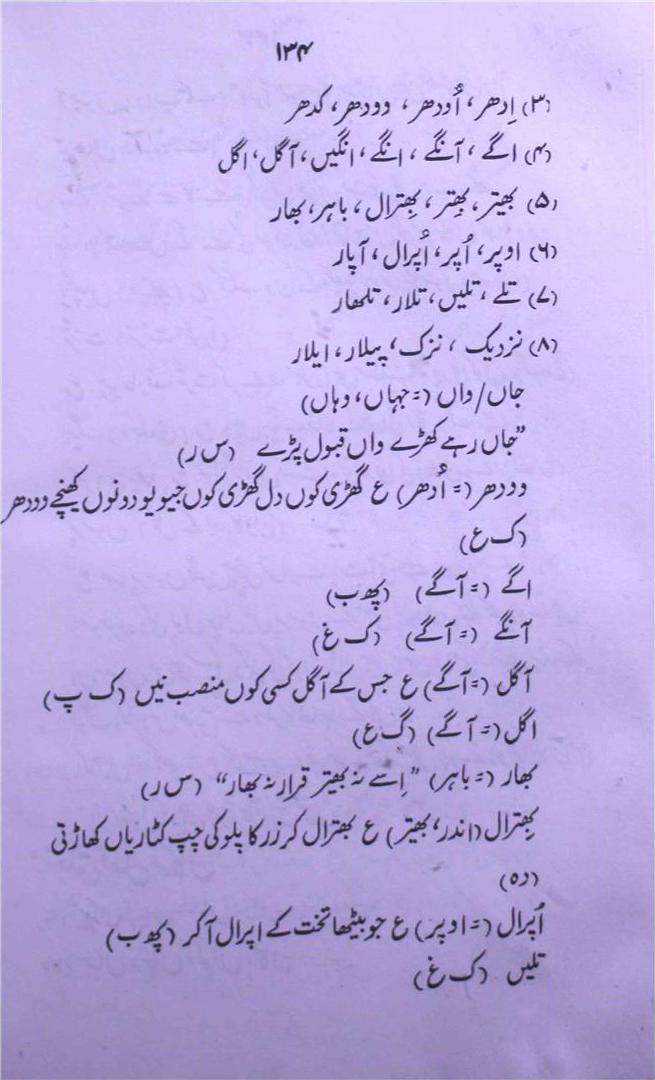 ۱۳۴
(۳) اِدھر، اُودھر، وودھر، کدھر
(۴) اگے، آنگے، انگے، انگیں، آگل، اگل
(۵) بھیتر، بھِتر، بھِترال، باہر، بھار
(۶) اوپر، اُپر، اُپرال، آپار
(۷) تلے، تلیں، تلار، تلھار
(۸) نزدیک، نزک، پیلار، ایلار
جاں/واں (= جہاں، وہاں)
"جاں رہے کھڑے واں قبول پڑے (س ر)
وودھر (= اُدھر) ع گھڑی کوں دل گھڑی کوں جیو یو دونوں کھینچے وودھر
(ک ع)
اگے (= آگے) (پھ ب)
آنگے (= آگے) (ک غ)
آگل (= آگے) ع جس کے آگل کسی کوں منصب نیں (ک پ)
اگل (= آگے) (گ ع)
بھار (= باہر) "اِسے نہ بھیتر قرار نہ بھار" (س ر)
بھِترال (اندر، بھیتر) ع بھترال کر زر کا پلو کی چپ کٹاریاں کھاڑتی
(دہ)
اُپرال (= اوپر) ع جو بیٹھا تخت کے اپرال آ کر (پھ ب)
تلیں (ک غ)